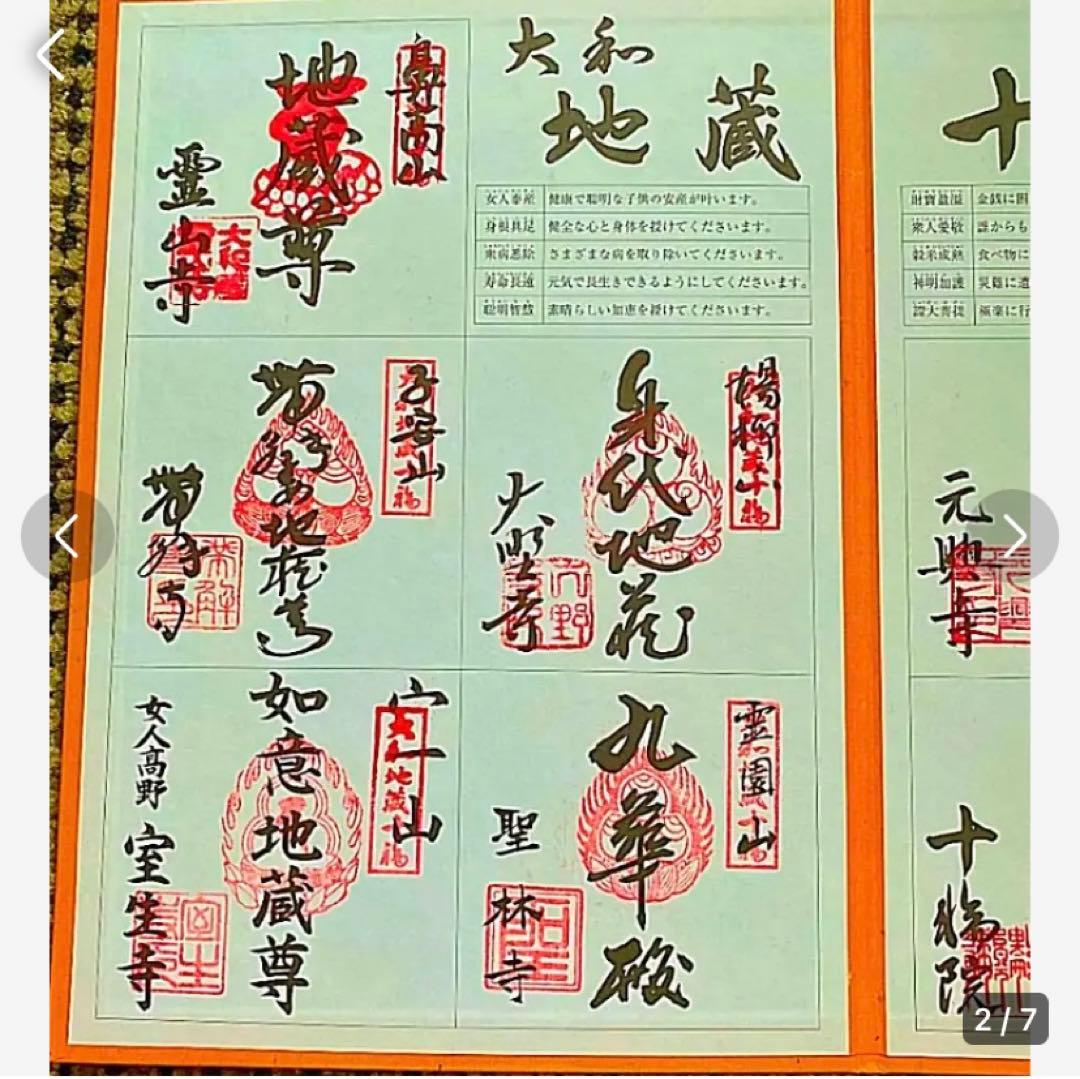 大和
地蔵
十
女人泰産 健康で聡明な子供の安産が叶います。
身根具足 健全な心と身体を授けてくださいます。
衆病悉除 さまざまな病を取り除いてくださいます。
寿命長遠 元気で長生きできるようにしてくださいます。
聡明智慧 素晴らしい知恵を授けてくださいます。
財寶盈溢 金銭に困
衆人愛敬 誰からも
穀米成熟 食べ物に
神明加護 災難に遭
證大菩提 極楽に行
地蔵尊
霊山寺
楊柳山
身代地蔵
大野寺
子安山
帯解子安地蔵尊
帯解寺
元興寺
霊園山
九華殿
聖林寺
宀一山
如意地蔵尊
女人高野
室生寺
十輪院
2/7